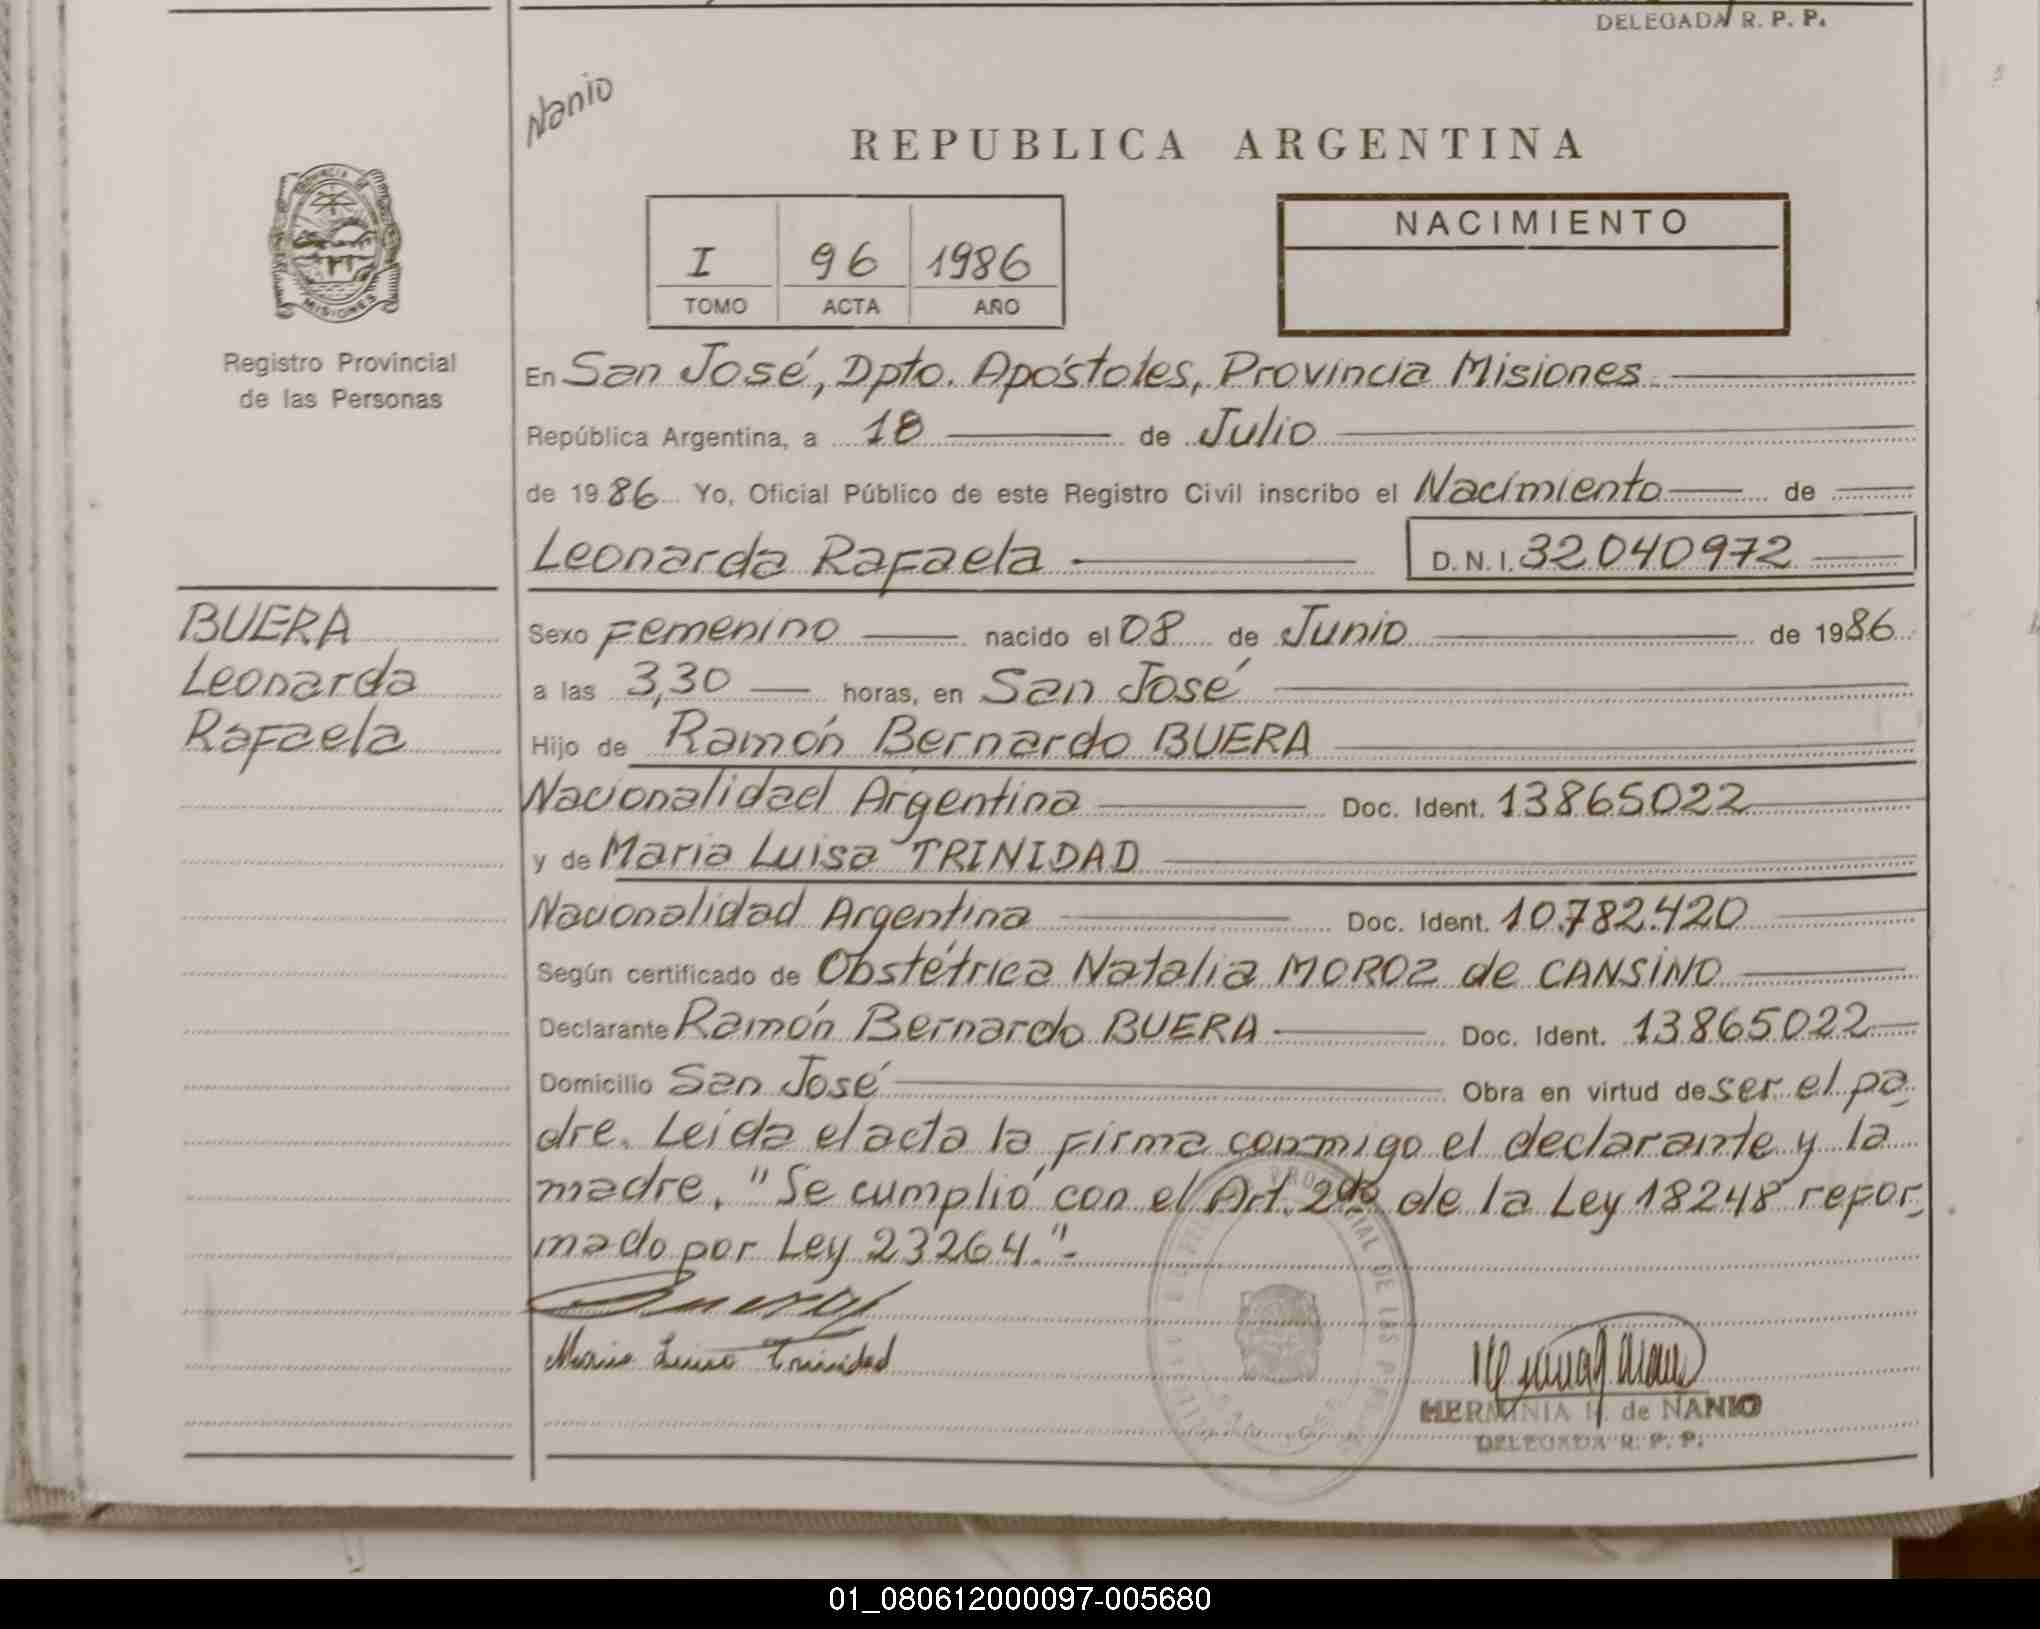 DELEGADA R. P. P.
Nanio
REPUBLICA ARGENTINA
PROVINCIA DE
MISIONES
Registro Provincial
de las Personas
I 96 1986
TOMO ACTA AÑO
NACIMIENTO
En San José, Dpto. Apóstoles, Provincia Misiones.
República Argentina, a 18 de Julio
de 1986 Yo, Oficial Público de este Registro Civil inscribo el Nacimiento de
Leonarda Rafaela D.N.I. 32040972
BUERA
Leonarda
Rafaela
Sexo Femenino nacido el 08 de Junio de 1986
a las 3,30 horas, en San José
Hijo de Ramón Bernardo BUERA
Nacionalidad Argentina Doc. Ident. 13865022
y de Maria Luisa TRINIDAD
Nacionalidad Argentina Doc. Ident. 10.782.420
Según certificado de Obstétrica Natalia MOROZ de CANSINO
Declarante Ramón Bernardo BUERA Doc. Ident. 13865022
Domicilio San José Obra en virtud de ser el pa-
dre. Leida el acta la firma conmigo el declarante y la
madre. "Se cumplió con el Art. 2do de la Ley 18248 refor-
mado por Ley 23264."-
Maria Luisa Trinidad
HERMINIA H. de NANIO
DELEGADA R. P. P.
01_080612000097-005680